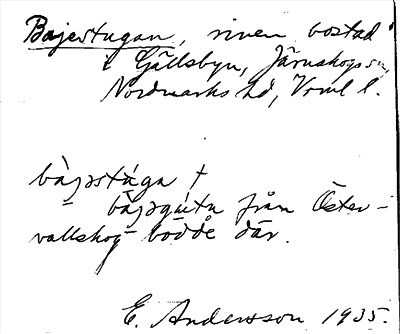 Bajerstugan, riven bostad
i Gällsbyn, Järnskogs sn,
Nordmarks hd, Vrml l.
†
från Öster-
vallskog bodde där.
E. Andersson 1935.